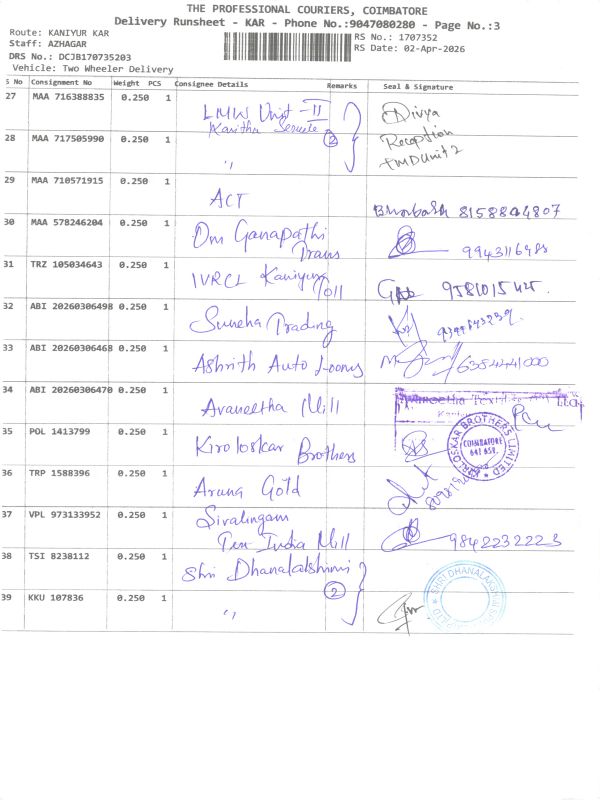 THE PROFESSIONAL COURIERS, COIMBATORE
Delivery Runsheet - KAR - Phone No.:9047080280 - Page No.:3
Route: KANIYUR KAR
RS No.: 1707352
Staff: AZHAGAR
RS Date: 02-Apr-2026
DRS No.: DCJB170735203
Vehicle: Two Wheeler Delivery
S No Consignment No Weight PCS Consignee Details Remarks Seal & Signature
27 MAA 716388835 0.250 1 LMW Unit - II Divya
Kavitha 2 Reception
28 MAA 717505990 0.250 1 " LMD Unit 2
29 MAA 710571915 0.250 1 ACT 8158804807
30 MAA 578246204 0.250 1 Om Ganapathi
Trans
31 TRZ 105034643 0.250 1 IVRCL Kaniyur
Toll
32 ABI 20260306498 0.250 1 Suneha Trading
33 ABI 20260306468 0.250 1 Ashrith Auto Looms 6384441000
34 ABI 20260306470 0.250 1 Avaneetha Mill
35 POL 1413799 0.250 1 Kiroloskar Brothers
KIRLOSKAR BROTHERS LIMITED
COIMBATORE
641 658.
36 TRP 1588396 0.250 1 Aruna Gold
37 VPL 973133952 0.250 1 Sivalingam
Ten India Mill 9842232223
38 TSI 8238112 0.250 1 Shri Dhanalakshmi
2
SHRI DHANALAKSHMI
39 KKU 107836 0.250 1 "